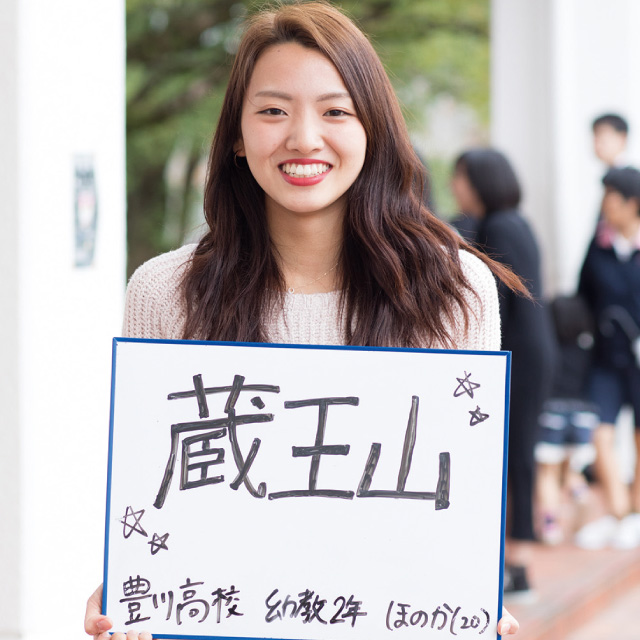 蔵王山
豊川高校 幼教2年 ほのか(20)